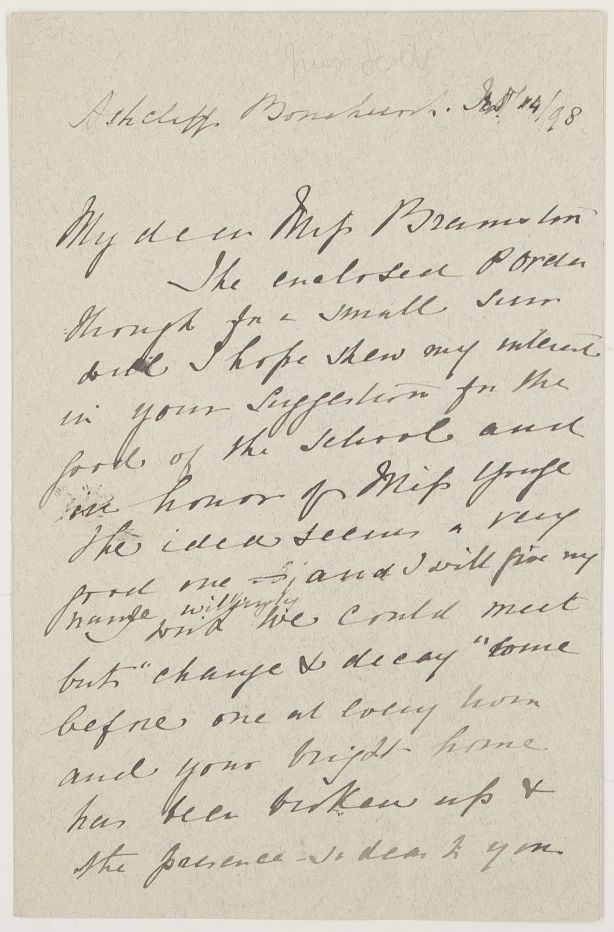 Ashcliff Bonchurch. 14/98
My dear Miss Bramston
The enclosed P Order
though for a small sum
will I hope shew my interest
in your suggestion for the
good of the school and
in honor of Miss Yonge
The idea seems a very
good one and I will give my
name willingly
wish we could meet
but "change & decay" come
before one at every turn
and your bright home
has been broken up &
the presence so dear to you